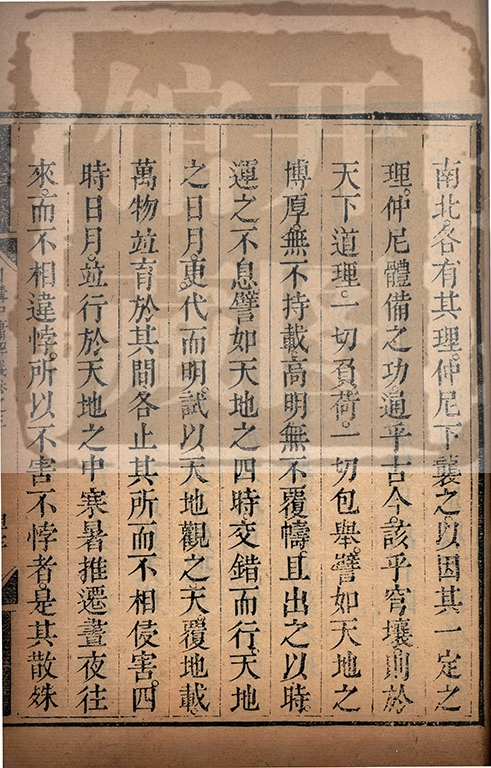 南北。各有其理。仲尼下襲之以因其一定之
理。仲尼體備之功。通乎古今。該乎穹壤。則於
天下道理。一切負荷。一切包舉。譬如天地之
博厚。無不持載。高明無不覆幬。且出之以時。
運之不息。譬如天地之四時。交錯而行。天地
之日月。更代而明。試以天地觀之。天覆地載。
萬物竝育於其間。各止其所而不相侵害。四
時日月。竝行於天地之中。寒暑推遷。晝夜往
來。而不相違悖。所以不害不悖者。是其散殊